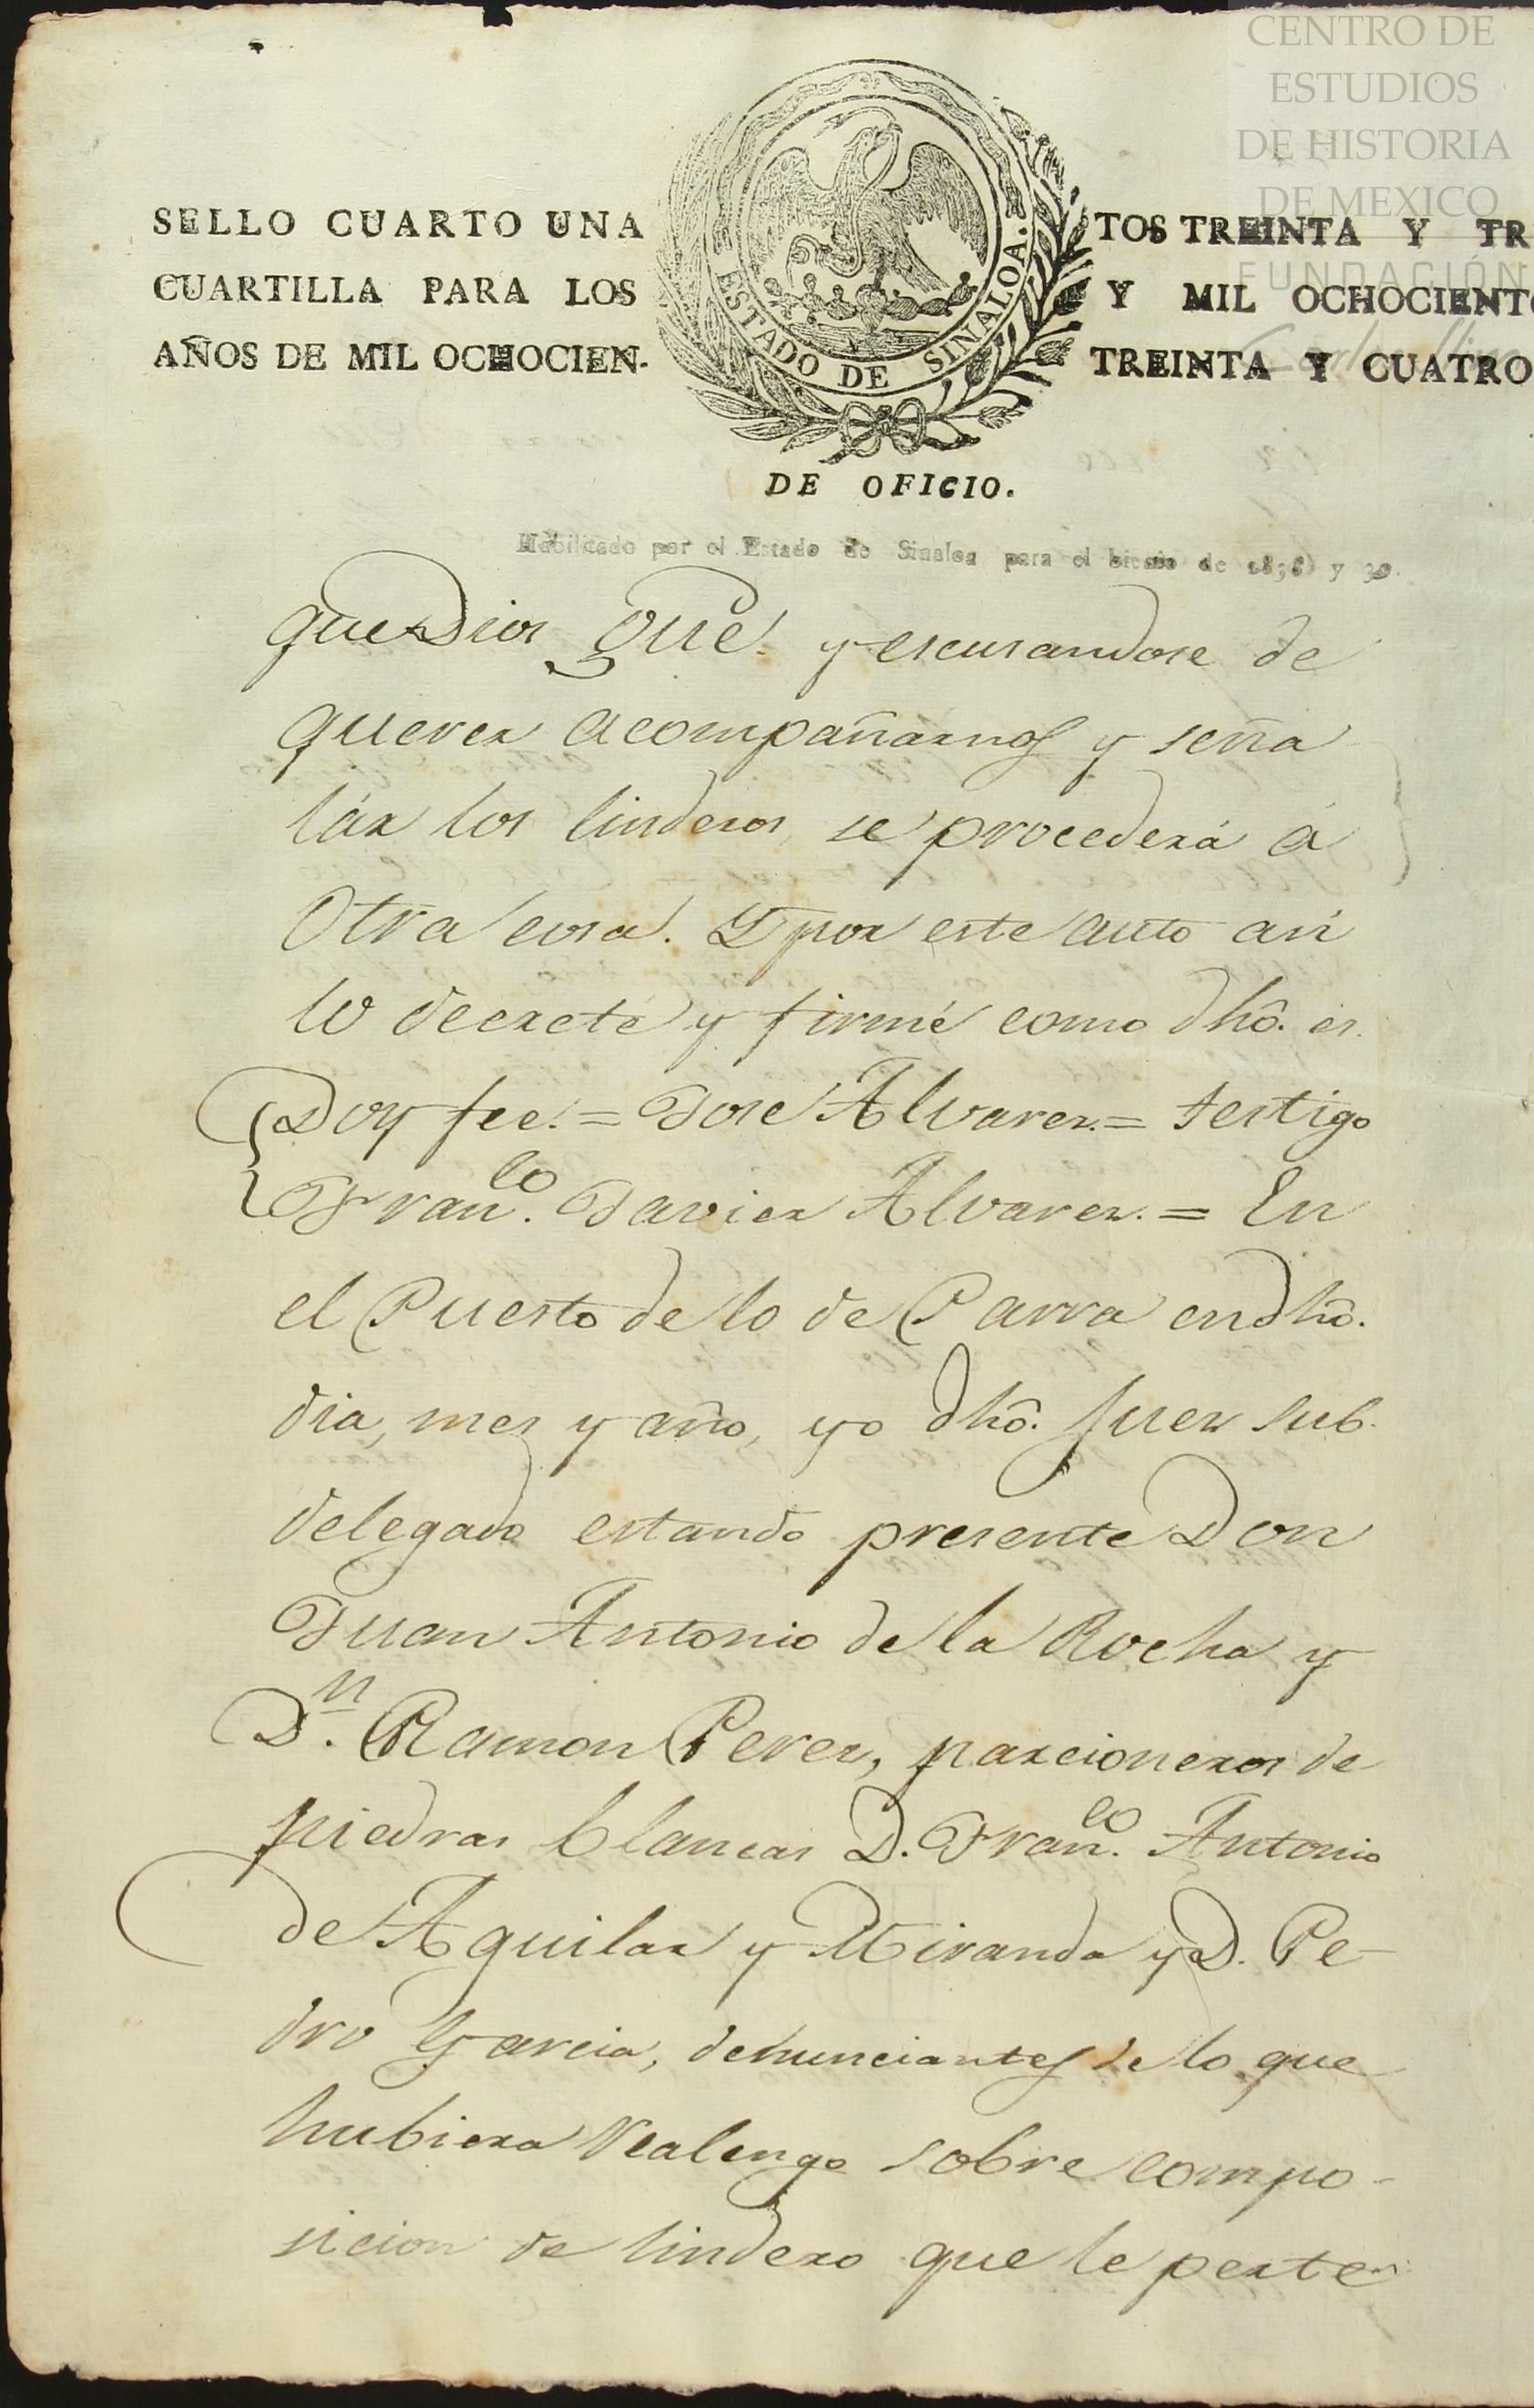 CENTRO DE
ESTUDIOS
DE HISTORIA
DE MEXICO
FUNDACIÓN
SELLO CUARTO UNA
CUARTILLA PARA LOS
AÑOS DE MIL OCHOCIEN-
ESTADO DE SINALOA.
TOS TREINTA Y TR
Y MIL OCHOCIENTO
TREINTA Y CUATRO
DE OFICIO.
Habilitado por el Estado de Sinaloa para el bienio de 1838 y 39.
que Dios gue. y escusandose de
querer acompañarnos y seña
lár los linderos, se procederá á
otra cosa. Y por este auto asi
lo decreté y firmé como dhô. es.
Doy fee. = Jose Alvarez. = testigo
Fran.co Javier Alvarez. = En
el Puesto de lo de Parra en dhô.
dia, mes y año, yo dhô. Juez sub-
delegado estando presente Don
Juan Antonio de la Rocha y
D.n Ramon Perez, parcioneros de
piedras blancas D. Fran.co Antonio
de Aguilar y Miranda y D. Pe-
dro Garcia, denunciantes de lo que
hubiera realengo sobre compo-
sicion de lindero que le perte-